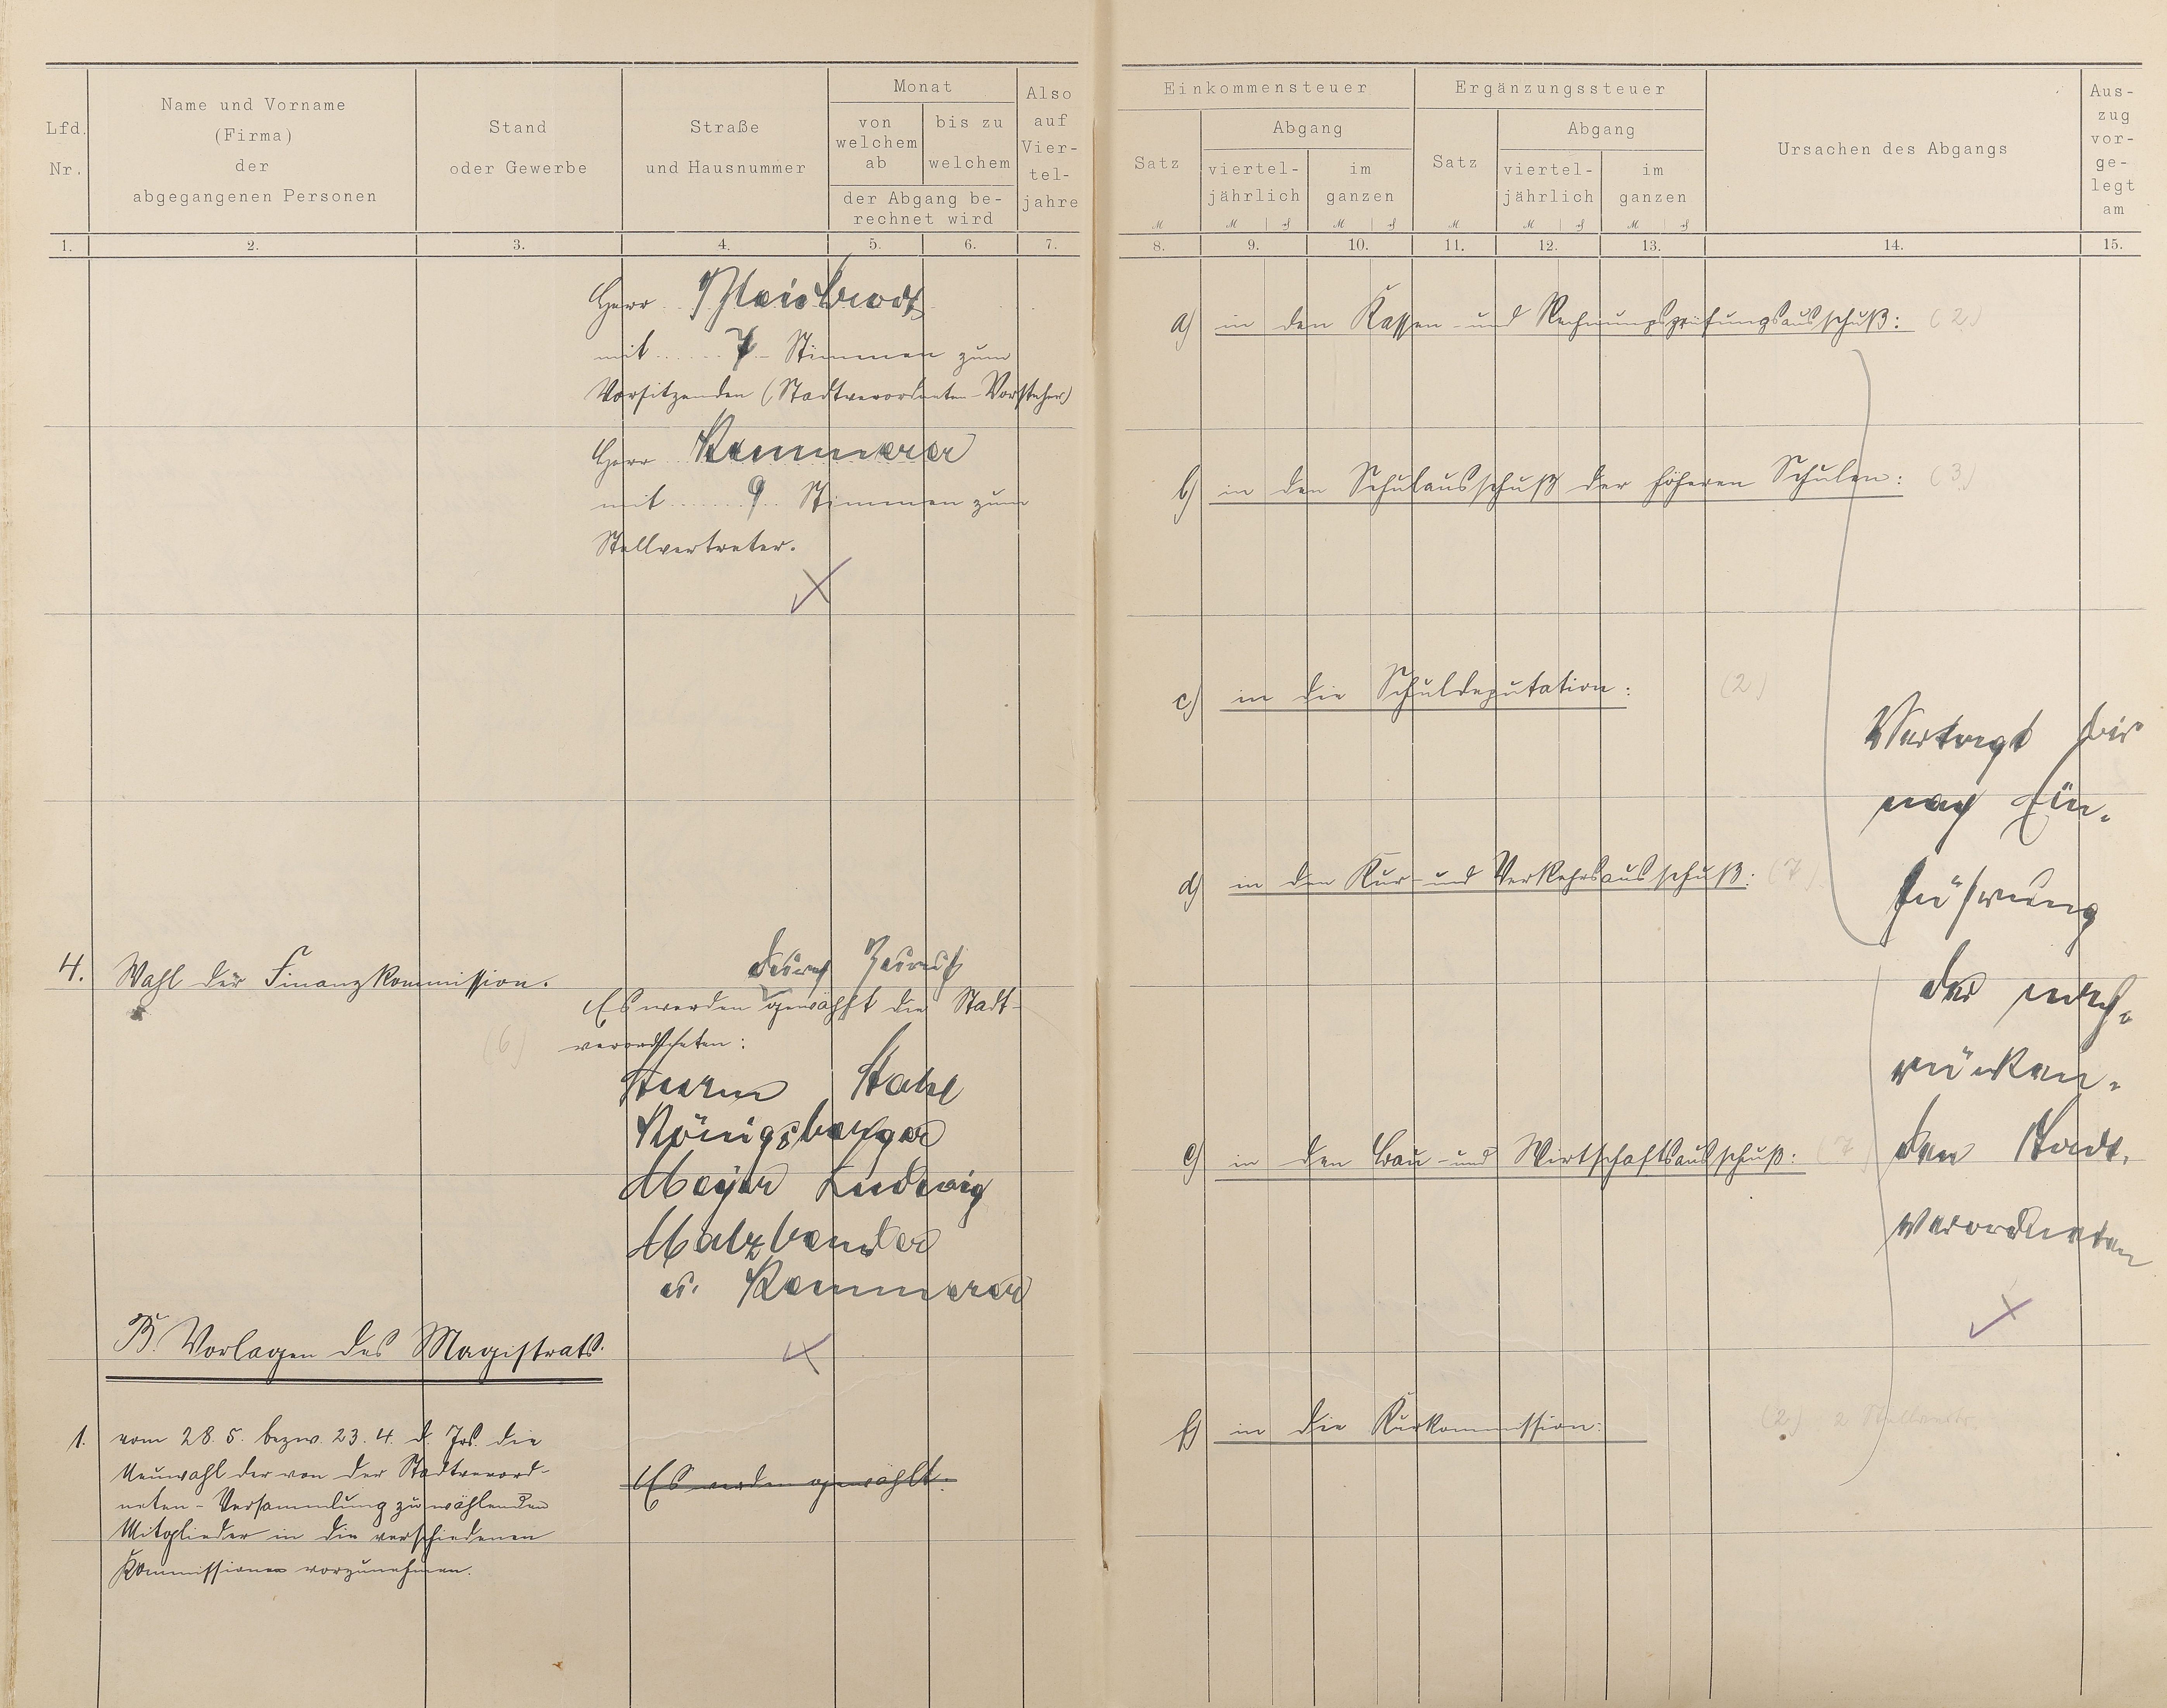 Lfd. Nr.
Name und Vorname
(Firma)
der
abgegangenen Personen
Stand
oder Gewerbe
Straße
und Hausnummer
Monat
von welchem ab
bis zu welchem
der Abgang be-
rechnet wird
Also auf Vier-
tel-
jahre
1. 2. 3. 4. 5. 6. 7.
Herr
mit 7 Stimmen zum
Vorsitzenden (Stadtverordneten-Vorsteher)
Herr Kemmerer
mit 9 Stimmen zum
Stellvertreter.
4. Wahl der Finanzkommission.
(6)
durch Zuruf
Es werden gewählt die Stadt-
verordneten:
Herrn Stahl
Königsberger
Meyer Ludwig
Malzbender
u. Kemmerer
B. Vorlagen des Magistrats.
1. vom 28. 5. bezw. 23. 4. d. Js. die
Neuwahl der von der Stadtverord-
neten-Versammlung zu wählenden
Mitglieder in die verschiedenen
Kommissionen vorzunehmen.
Es werden gewählt:
Einkommensteuer
Satz
Abgang
viertel-
jährlich
im
ganzen
Ergänzungssteuer
Satz
Abgang
viertel-
jährlich
im
ganzen
Ursachen des Abgangs
Aus-
zug
vor-
ge-
legt
am
8. 9. 10. 11. 12. 13. 14. 15.
a) in den Kassen- und Rechnungsprüfungsausschuß: (2)
b) in den Schulausschuß der höheren Schulen: (3)
c) in die Schuldeputation: (2)
d) in den Kur- und Verkehrsausschuß: (7)
e) in den Bau- und Wirtschaftsausschuß: (7)
f) in die Kurkommission: (2) 2 Stellvertr.
Vertagt bis
nach Ein-
führung
der nach-
rücken-
den Stadt-
verordneten